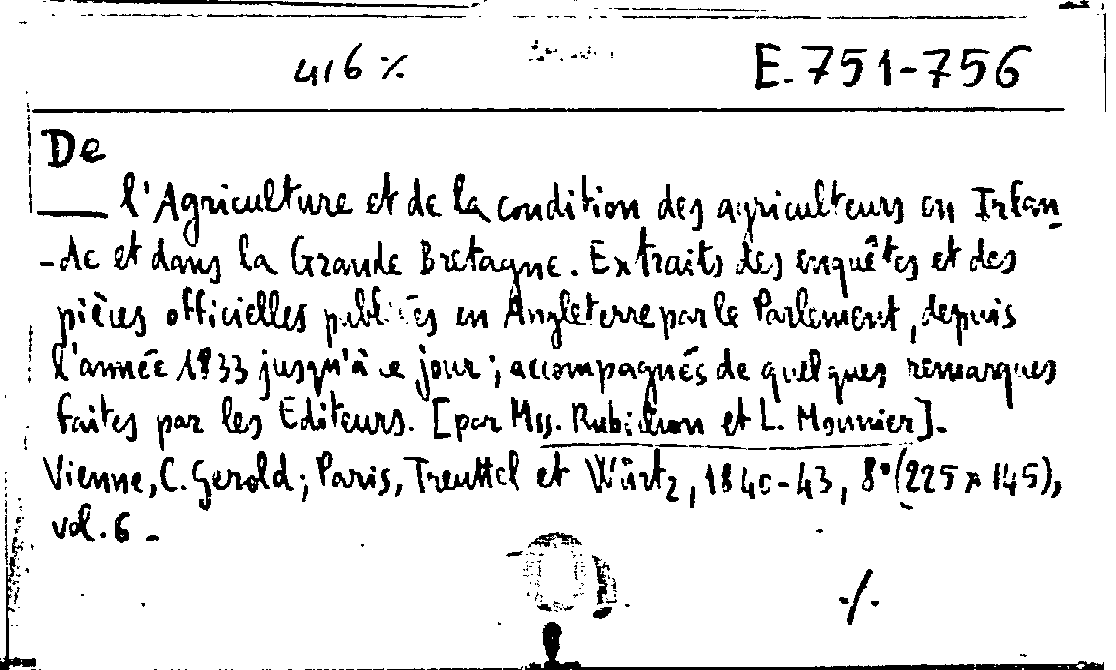 416 ٪ E. 751-756
De
___ l'Agriculture et de la condition des agriculteurs en Irlan
-de et dans la Grande Bretagne. Extraits des enquêtes et des
pièces officielles publiées en Angleterre par le Parlement, depuis
l'année 1833 jusqu'à ce jour; accompagnés de quelques remarques
faites par les Editeurs. [par Mss. Rubichon et L. Mounier].
Vienne, C. Gerold; Paris, Treuttel et Würtz, 1840-43, 8° (225 x 145),
vol. 6 -
./.